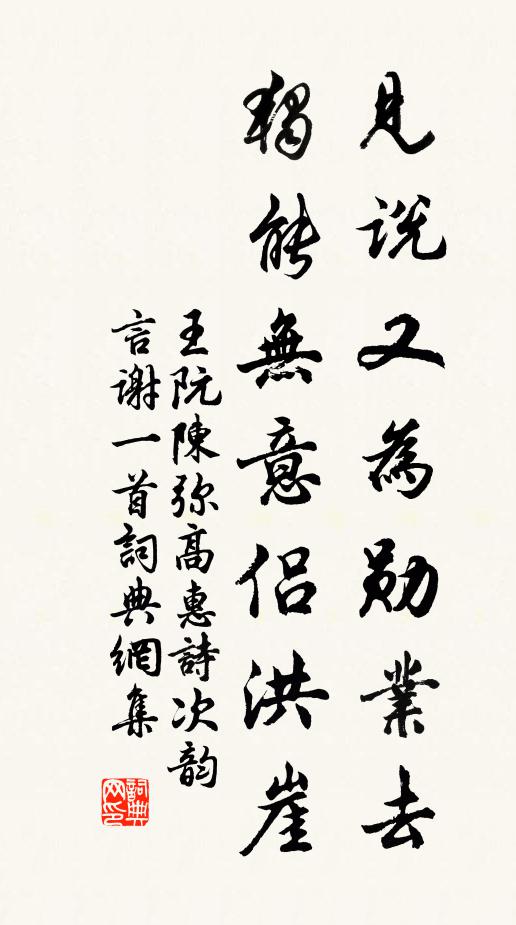 見説又為勛業去
獨能無意侶洪崖
王阮陳弥高惠詩次韵
言謝一首詞典網集
詞典网印